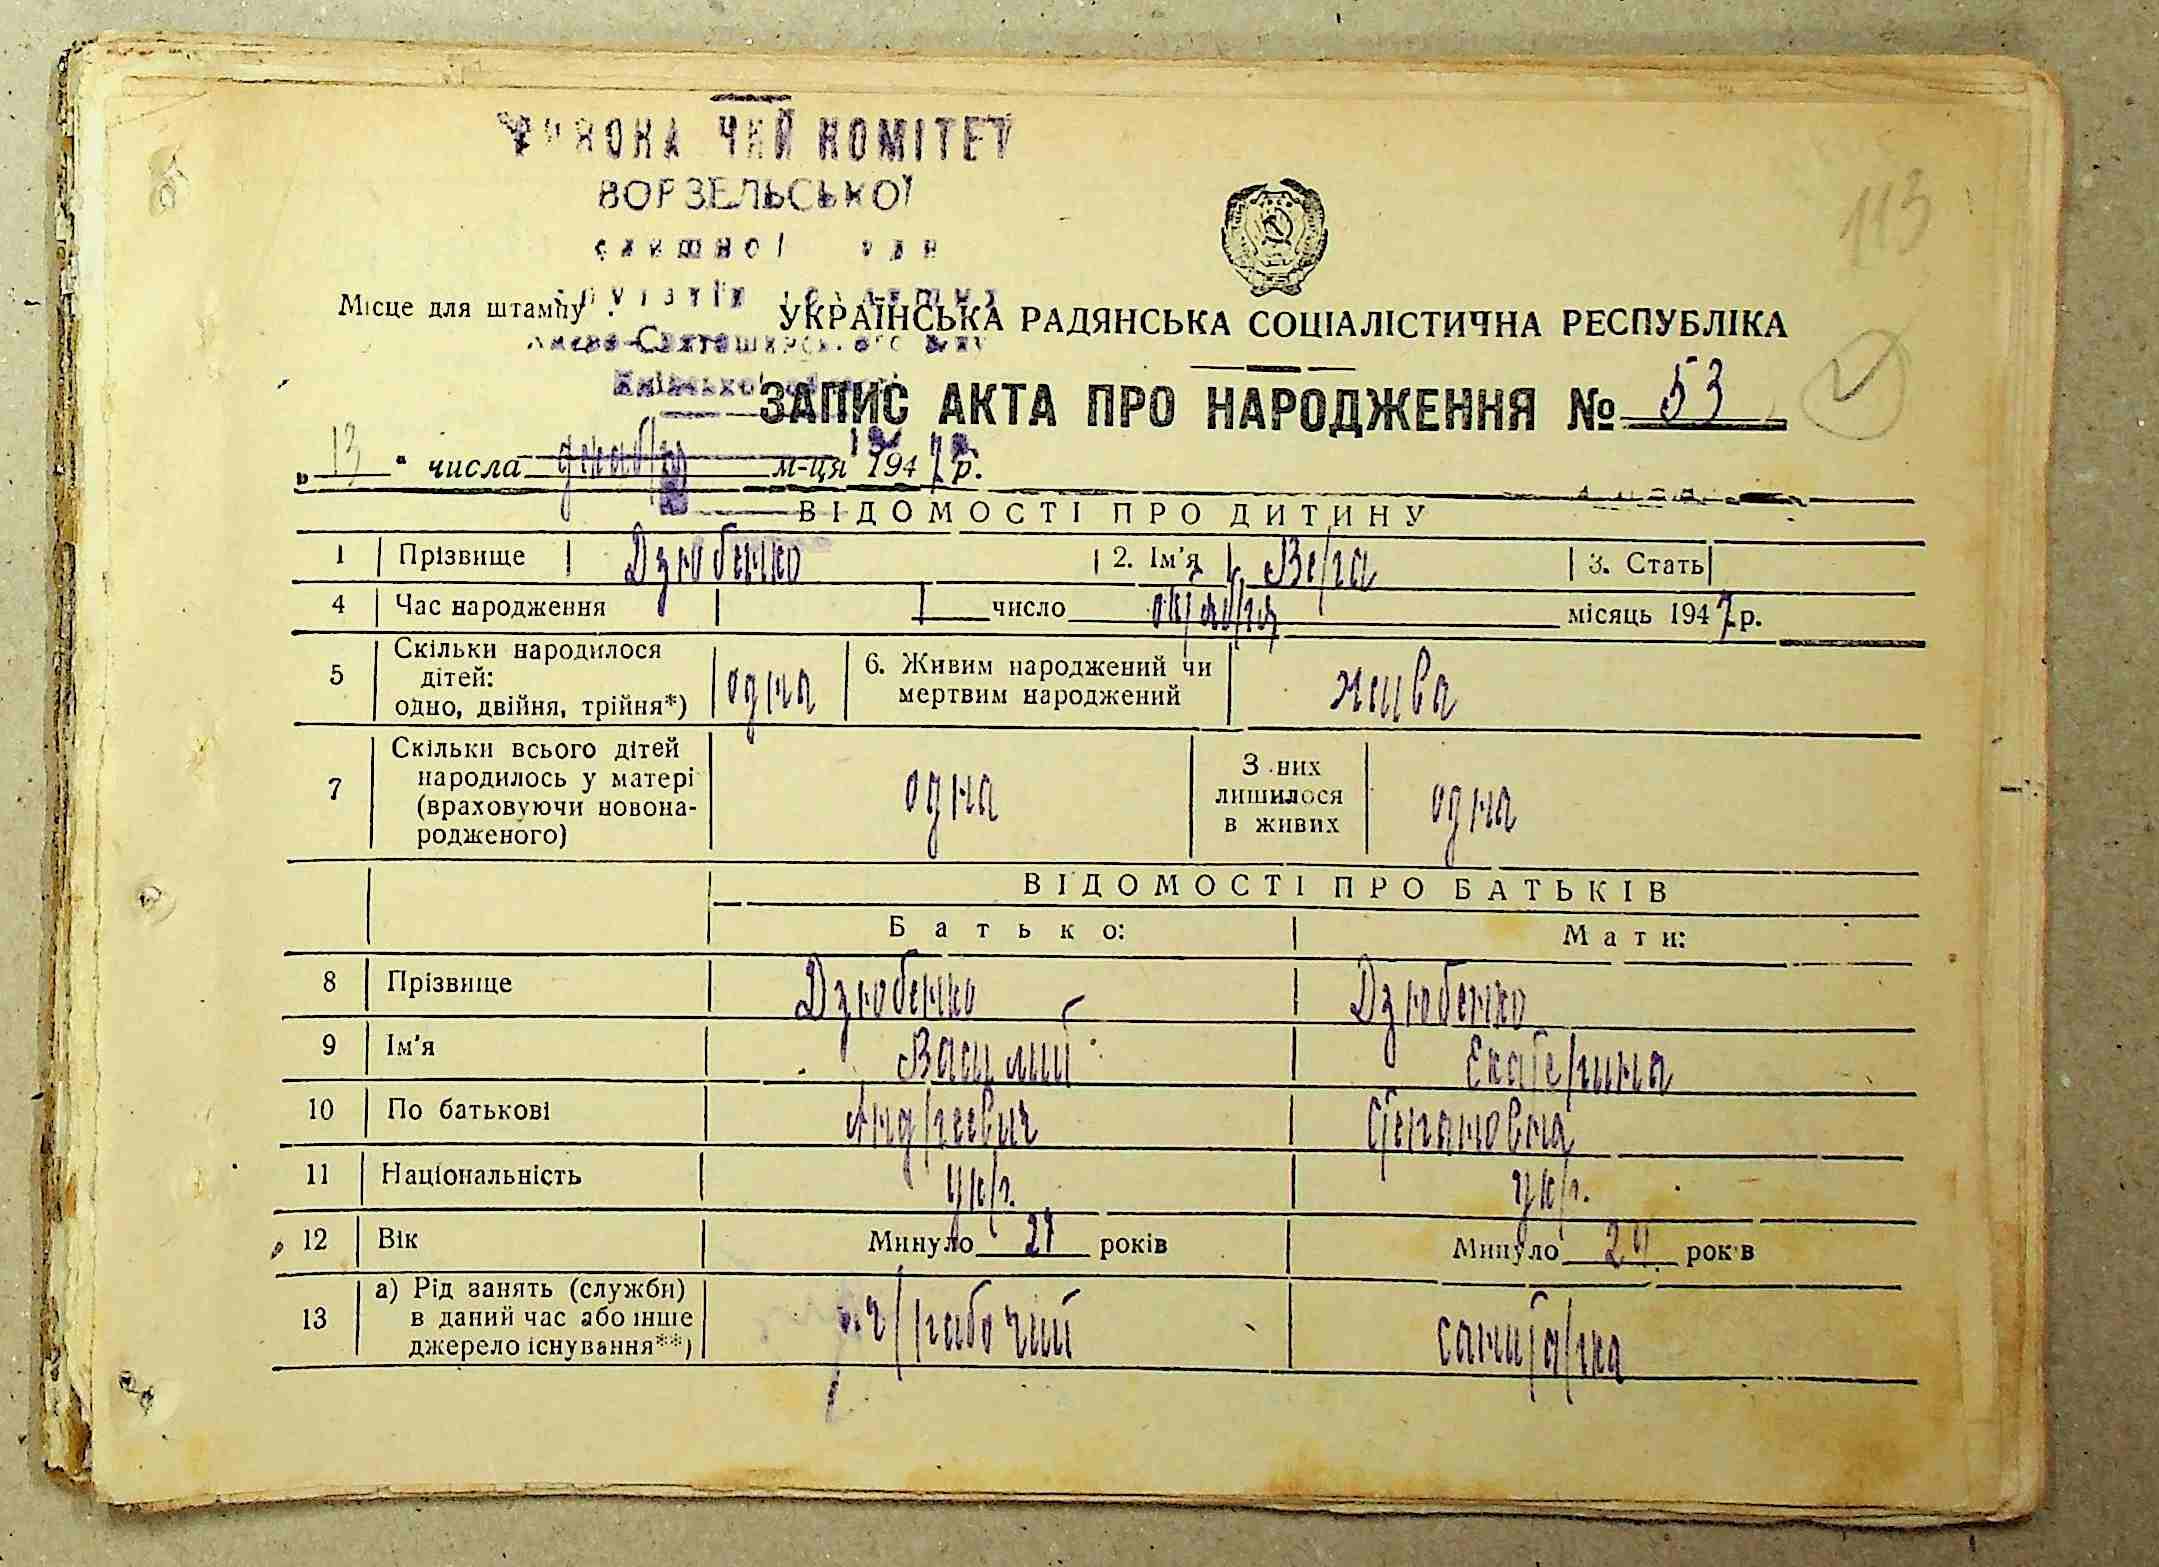 КОМІТЕТ
ВОРЗЕЛЬСЬКОЇ
113
Місце для штампу
УКРАЇНСЬКА РАДЯНСЬКА СОЦІАЛІСТИЧНА РЕСПУБЛІКА
ЗАПИС АКТА ПРО НАРОДЖЕННЯ № 53
„13“ числа декабря м-ця 1947 р.
ВІДОМОСТІ ПРО ДИТИНУ
1 Прізвище Дзюбенко 2. Ім'я Вера 3. Стать
4 Час народження 1 число октября місяць 1947 р.
5 Скільки народилося дітей: одно, двійня, трійня*) одна 6. Живим народжений чи мертвим народжений жива
7 Скільки всього дітей народилось у матері (враховуючи новонародженого) одна З них лишилося в живих одна
ВІДОМОСТІ ПРО БАТЬКІВ
Батько: Мати:
8 Прізвище Дзюбенко Дзюбенко
9 Ім'я Василий Екатерина
10 По батькові Андреевич Степановна
11 Національність укр. укр.
12 Вік Минуло 27 років Минуло 24 років
13 а) Рід занять (служби) в даний час або інше джерело існування**) рабочий санитарка